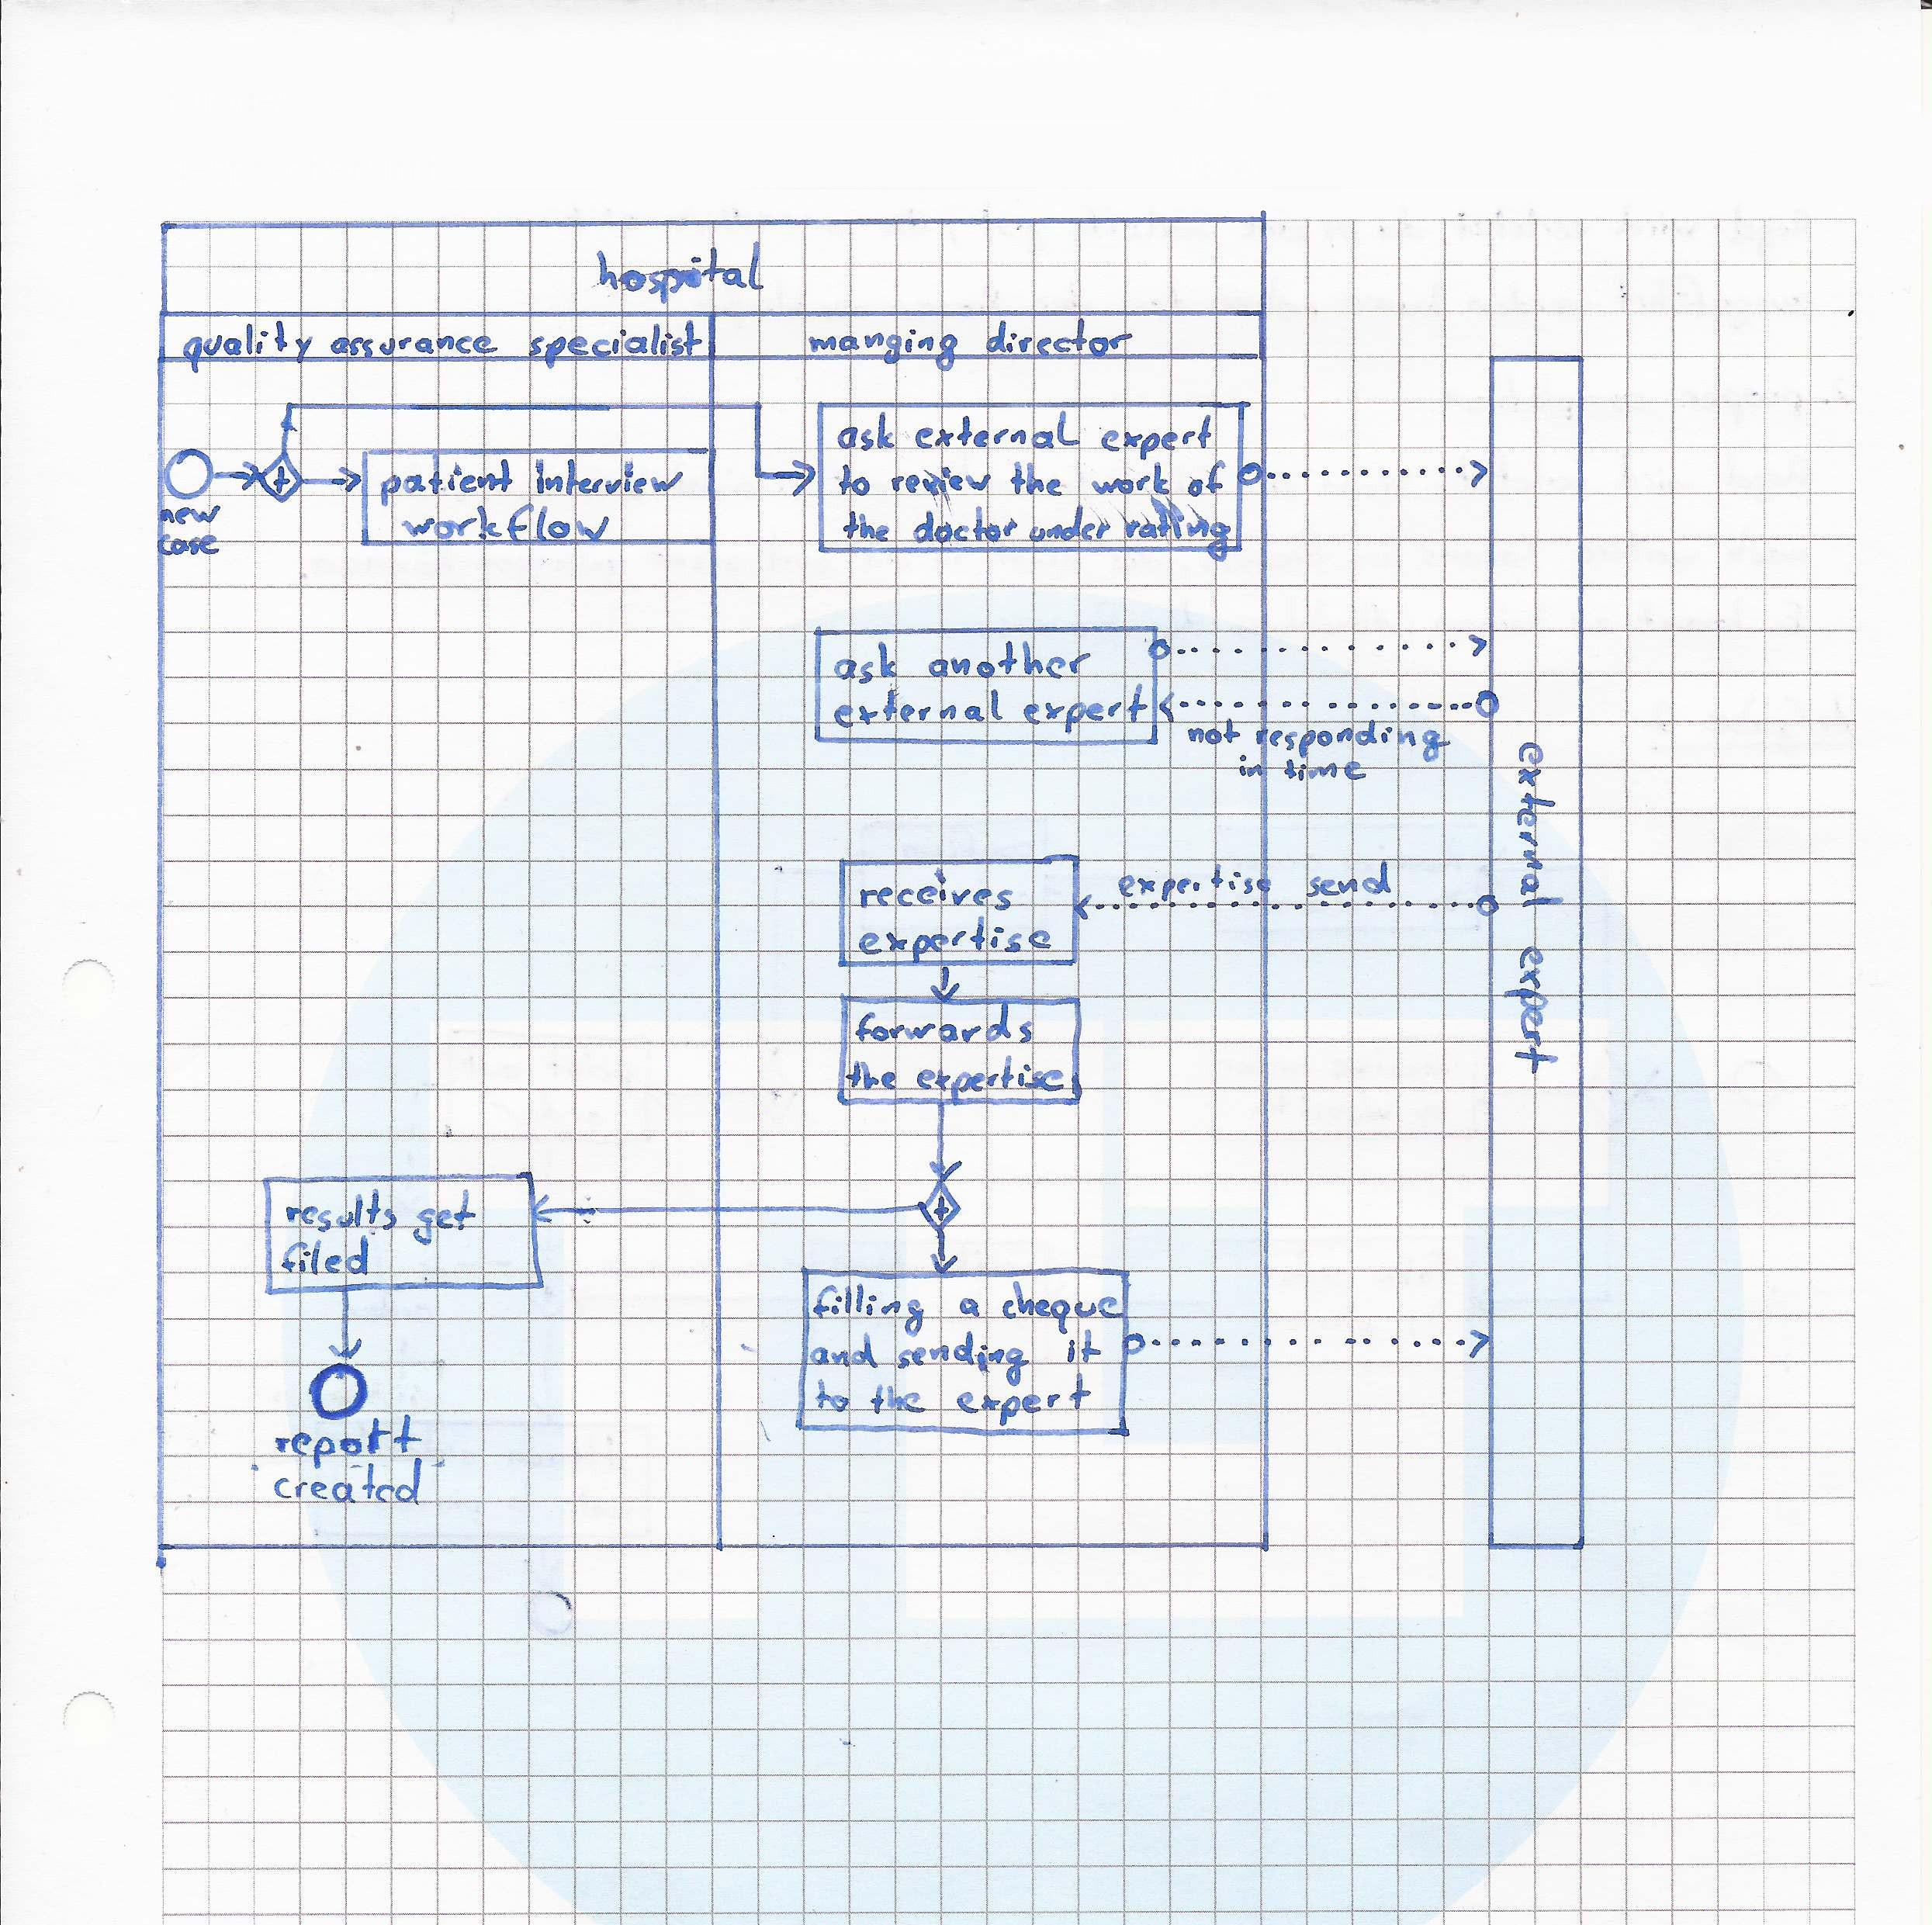 hospital
quality assurance specialist
manging director
new
case
patient interview
workflow
ask external expert
to review the work of
the doctor under rating
ask another
external expert
not responding
in time
external expert
receives
expertise
expertise send
forwards
the expertise
results get
filed
filling a cheque
and sending it
to the expert
report
created